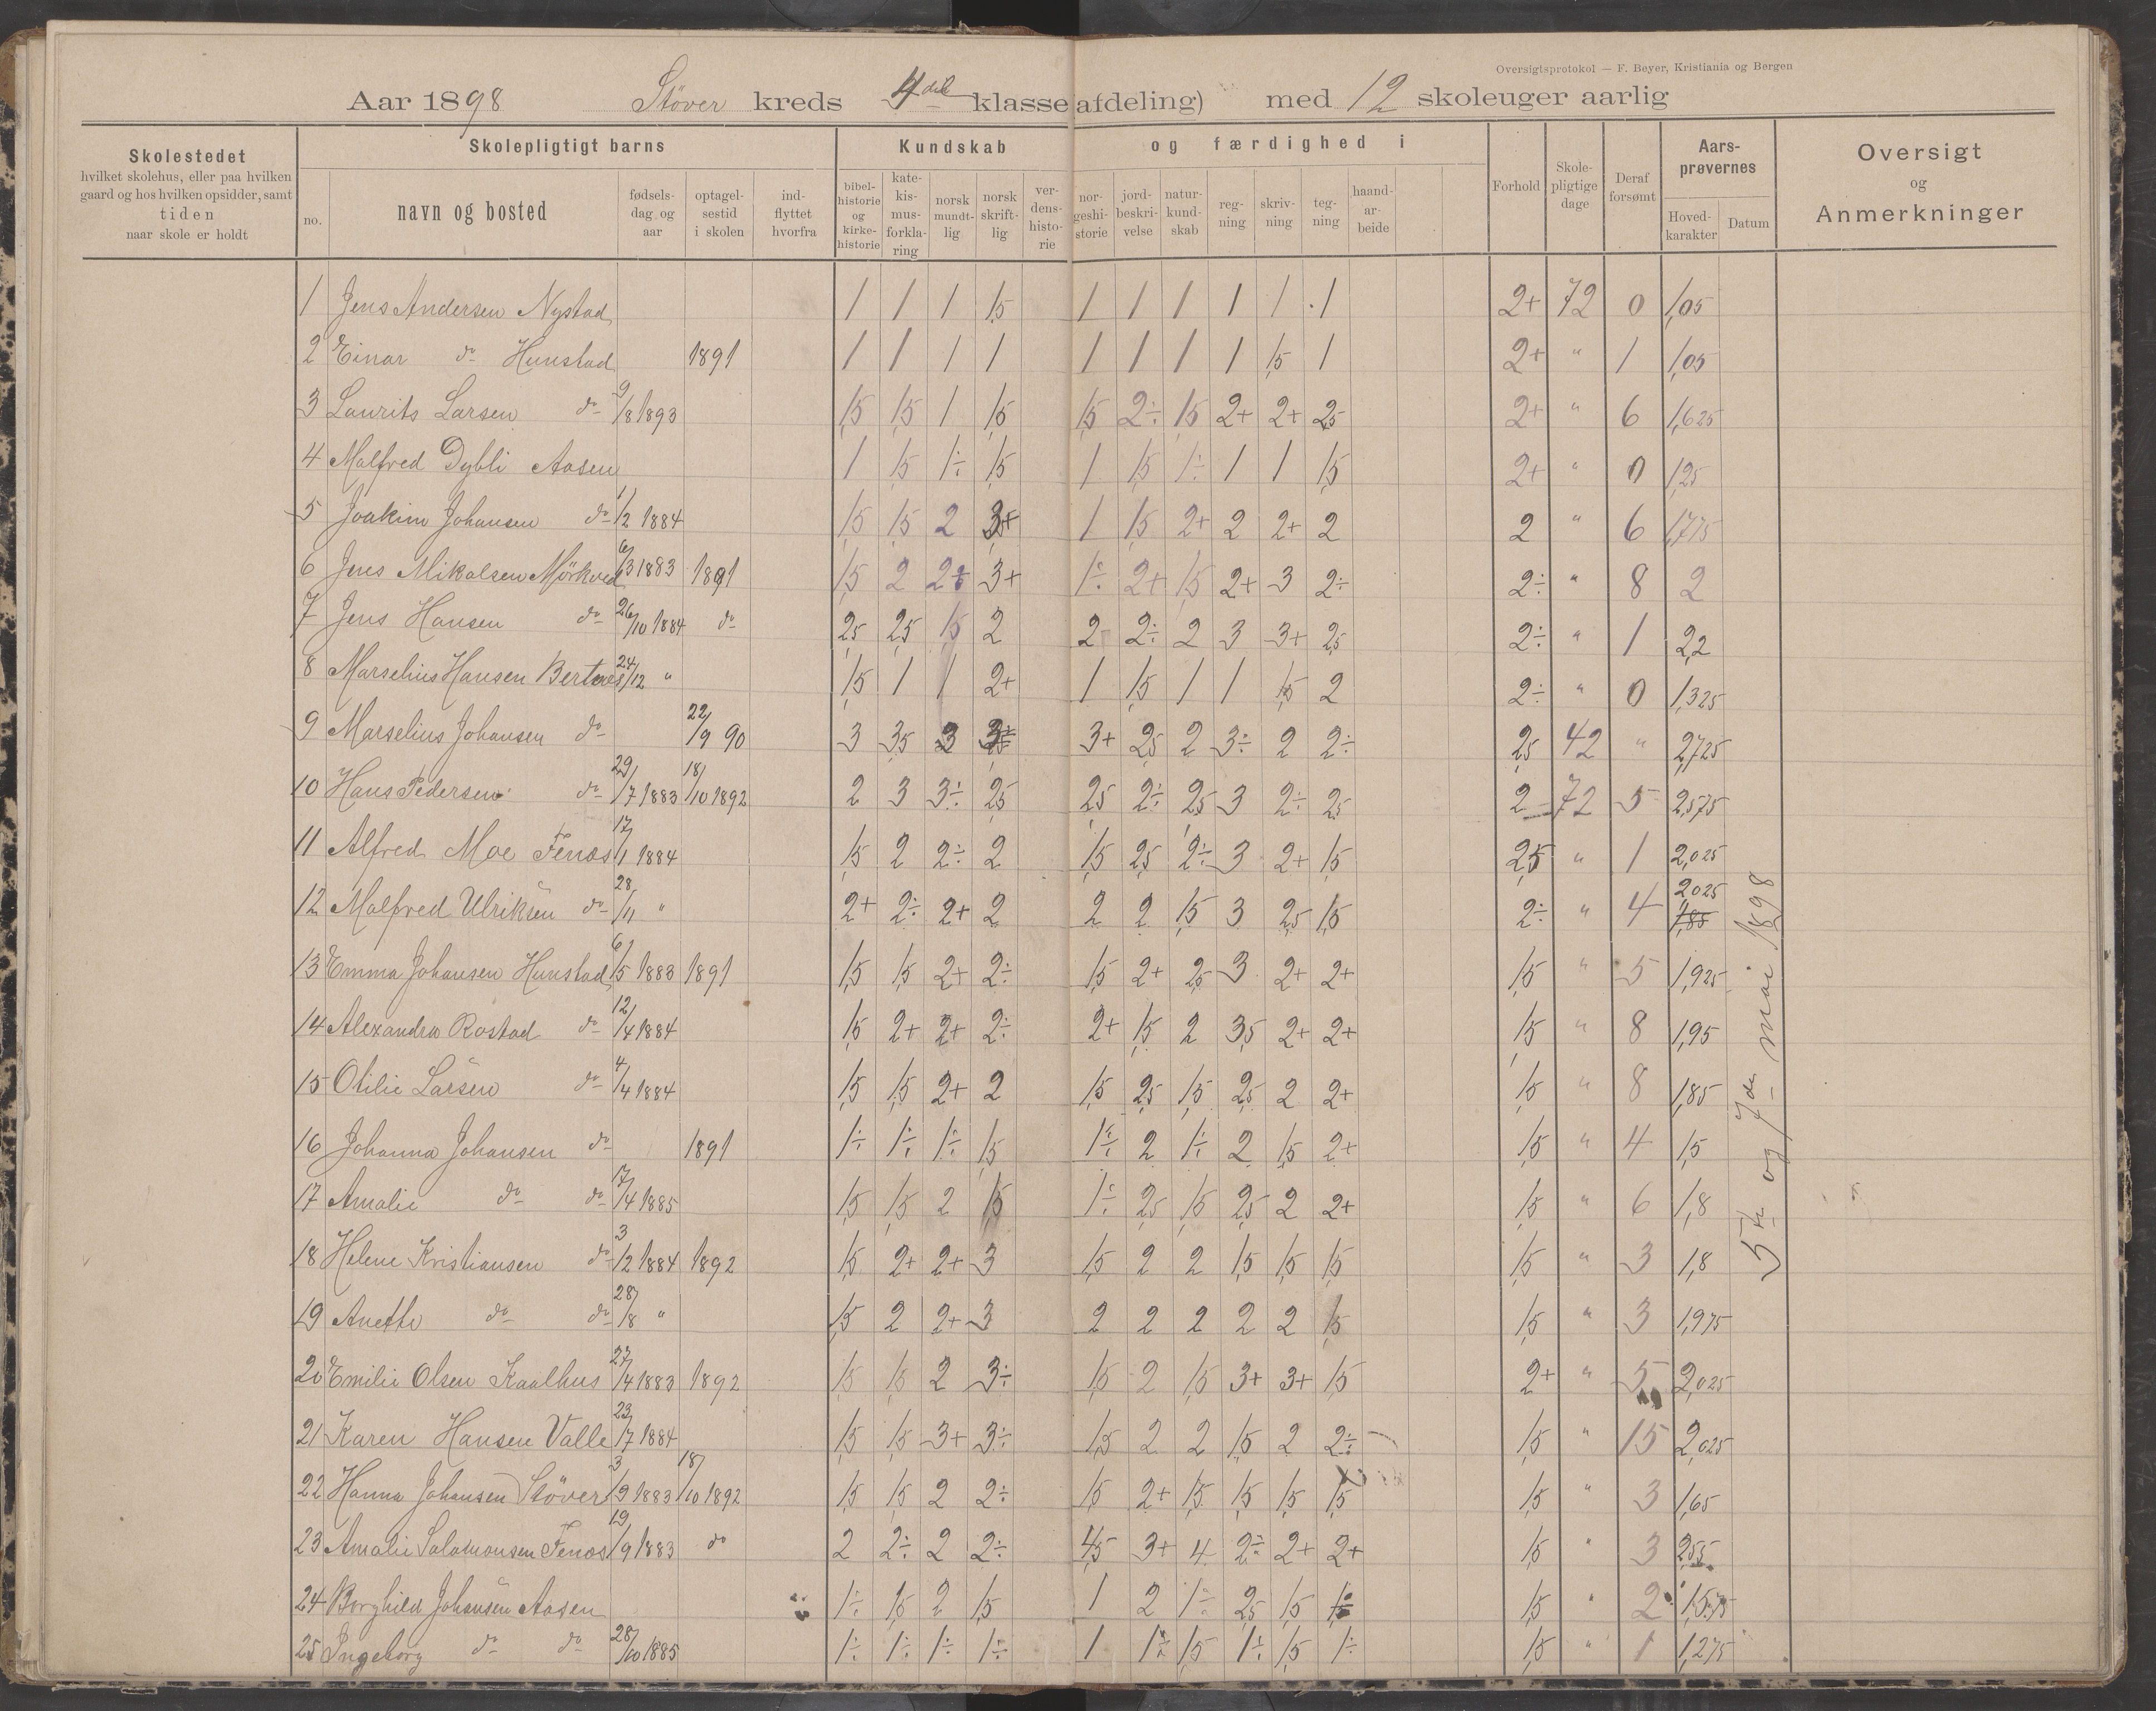 Oversigtsprotokol — F. Beyer, Kristiania og Bergen
Aar 1898 Støver kreds 4del klasse afdeling) med 12 skoleuger aarlig
Skolestedet
hvilket skolehus, eller paa hvilken
gaard og hos hvilken opsidder, samt
tiden
naar skole er holdt
Skolepligtigt barns
no.
navn og bosted
fødsels-
dag og
aar
optagel-
sestid
i skolen
ind-
flyttet
hvorfra
Kundskab og færdighed i
bibel-
historie
og
kirke-
historie
kate-
kis-
mus-
forkla-
ring
norsk
mundt-
lig
norsk
skrift-
lig
ver-
dens-
histo-
rie
nor-
geshi-
storie
jord-
beskri-
velse
natur-
kund-
skab
reg-
ning
skriv-
ning
teg-
ning
haand-
ar-
beide
Forhold
Skole-
pligtige
dage
Deraf
forsømt
Aars-
prøvernes
Hoved-
karakter
Datum
Oversigt
og
Anmerkninger
1 Jens Andersen Nystad 1 1 1 1,5 1 1 1 1 1 1 2+ 72 0 1,05
2 Einar do Hunstad 1891 1 1 1 1 1 1 1 1 1,5 1 2+ " 1 1,05
3 Laurits Larsen do 9/8 1893 1,5 1,5 1 1,5 1,5 2÷ 1,5 2+ 2+ 2,5 2+ " 6 1,625
4 Malfred Dybli Aasen 1 1,5 1÷ 1,5 1 1,5 1÷ 1 1 1,5 2+ " 0 1,25
5 Joakim Johansen do 1/2 1884 1,5 1,5 2 3+ 1 1,5 2+ 2 2+ 2 2 " 6 1,775
6 Jens Mikalsen Mörkved 6/3 1883 1891 1,5 2 2÷ 3+ 1÷ 2+ 1,5 2+ 3 2÷ 2÷ " 8 2
7 Jens Hansen do 26/10 1884 do 2,5 2,5 1,5 2 2 2÷ 2 3 3+ 2,5 2÷ " 1 2,2
8 Marselius Hansen Bertnes 24/12 " 1,5 1 1 2+ 1 1,5 1 1 1,5 2 2÷ " 0 1,325
9 Marselius Johansen do 22/9 90 3 3,5 3 3+ 2,5 2 3÷ 2 2÷ 2,5 42 " 2,725
10 Hans Pedersen do 29/7 1883 18/10 1892 2 3 3÷ 2,5 2,5 2÷ 2,5 3 2÷ 2,5 2 72 5 2,575
11 Alfred Moe Fenes 17/1 1884 1,5 2 2÷ 2 1,5 2,5 2÷ 3 2+ 1,5 2,5 " 1 2,025
12 Malfred Ulriksen do 28/11 " 2+ 2÷ 2+ 2 2 2 1,5 3 2,5 1,5 2÷ " 4 2025 1,85
13 Emma Johansen Hunstad 6/5 1883 1891 1,5 1,5 2+ 2÷ 1,5 2+ 2,5 3 2+ 2+ 1,5 " 5 1,925
14 Alexandra Rostad do 12/4 1884 1,5 2+ 2+ 2÷ 2+ 1,5 2 3,5 2+ 2+ 1,5 " 8 1,95
15 Otilie Larsen do 4/4 1884 1,5 1,5 2+ 2 1,5 2,5 1,5 2,5 2 2+ 1,5 " 8 1,85
16 Johanna Johansen do 1891 1÷ 1÷ 1÷ 1,5 1÷ 2 1÷ 2 1,5 2+ 1,5 " 4 1,5
17 Amalie do do 17/4 1885 1,5 1,5 2 1,5 1÷ 2,5 1,5 2,5 2 2+ 1,5 " 6 1,8
18 Helene Kristiansen do 3/12 1884 1892 1,5 2+ 2+ 3 1,5 2 2 1,5 1,5 1,5 1,5 " 3 1,8
19 Anette do do 28/8 " 1,5 2 2+ 3 2 2 2 2 2 1,5 1,5 " 3 1,975
20 Emilie Olsen Kaalhus 27/4 1883 1892 1,5 1,5 2 3÷ 1,5 2 1,5 3+ 3+ 1,5 2+ " 5 2,025
21 Karen Hansen Valle 23/7 1884 1,5 1,5 3+ 3÷ 1,5 2 2 1,5 2 2÷ 1,5 " 15 2,025
22 Hanna Johansen Støver 3/9 1883 18/10 1892 1,5 1,5 2 2÷ 1,5 2+ 1,5 1,5 1,5 1,5 1,5 " 3 1,65
23 Amalie Salomonsen Fenes 19/9 1883 do 2 2÷ 2 2÷ 4,5 3+ 4 2÷ 2+ 2+ 1,5 " 3 2,55
24 Borghild Johansen Aasen 1÷ 1,5 2 1,5 1 2 1÷ 2,5 1,5 1÷ 1,5 " 2 1,575
25 Ingeborg do do 28/10 1885 1÷ 1÷ 1÷ 1÷ 1 1÷ 1,5 1÷ 1,5 1÷ 1,5 " 1 1,275
5te og 7de mai 1898